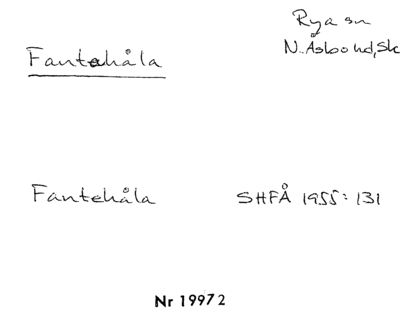 Rya sn
Fantehåla
N. Åsbo hd, Sk
Fantehåla SHFÅ 1955: 131
Nr 19972